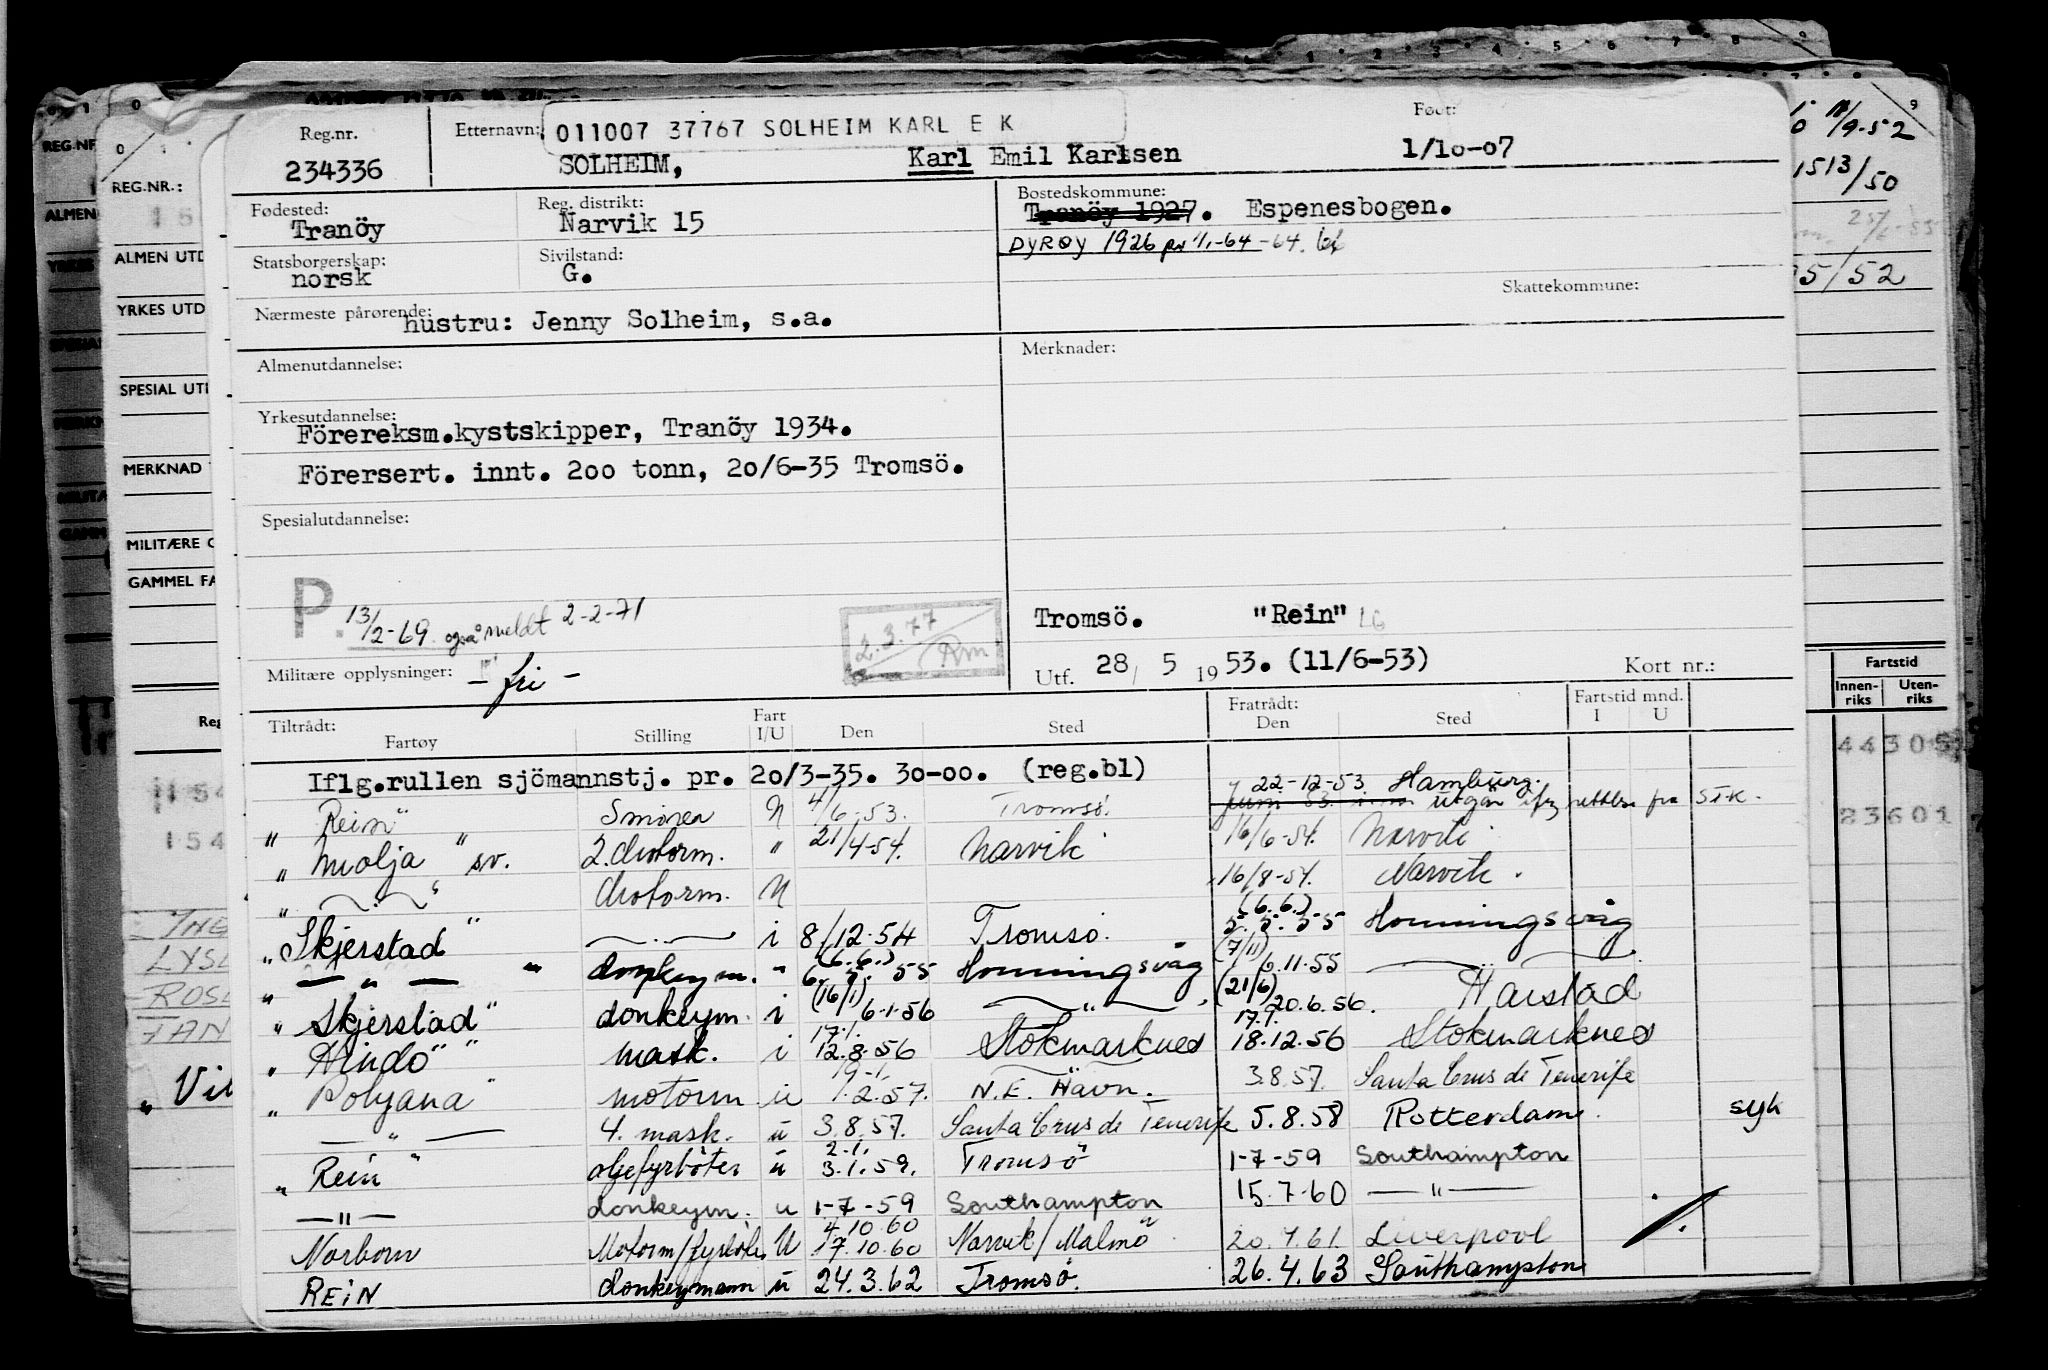 Reg.nr. Etternavn: 011007 37767 SOLHEIM KARL E K Født:
234336 SOLHEIM, Karl Emil Karlsen 1/10-07
Fødested: Reg. distrikt: Bostedskommune:
Tranöy Narvik 15 Tranöy 1927. Espenesbogen.
DYRØY 1926 pr 1/1-64
Statsborgerskap: Sivilstand:
norsk G. Skattekommune:
Nærmeste pårørende: hustru: Jenny Solheim, s.a.
Almenutdannelse: Merknader:
Yrkesutdannelse:
Förereksm.kystskipper, Tranöy 1934.
Försersert. innt. 200 tonn, 20/6-35 Tromsö.
Spesialutdannelse:
P. 13/2-69. også meldt 2-2-71
2.3.77 Rm
Tromsö. "Rein"
Militære opplysninger: - fri -
Utf. 28/ 5 1953. (11/6-53) Kort nr.:
Tiltrådt: Fart Fratrådt: Fartstid mnd.
Fartøy Stilling I/U Den Sted Den Sted I U
Iflg.rullen sjömannstj. pr. 20/3-35. 30-00. (reg.bl)
22-12-53 Hamburg.
" Rein" Smörer U 4/6-53. Tromsö. utgår rettelse fra STK.
" Molja" sv. 2. Motorm. " 21/4-54. Narvik 16/6-54. Narvik
" -"-" Motorm. U 16/8-54. Narvik.
" Skjerstad" -"- i 8/12-54 Tromsö. (6.6.) 5.5.55 Honningsvåg
" -"- " donkeym. " (6.6.) 6.5.55 Honningsvåg (7/11) 6.11.55 -"-
" Skjerstad" donkeym. i (16/1) 6-1-56 -"- (21/6) 20.6.56. Harstad
" Hindö" mask. i 12.8.56 Stokmarknes 17.9. 18.12.56 Stokmarknes
" Polyana" motorm u 1.2.57. N.E. Havn. 3.8.57. Santa Crus de Tenerife
-"- 4. mask. u 3.8.57. Santa Crus de Tenerife 5.8.58 Rotterdam. syk
" Rein" oljefyrböter u 2.1. 3.1.59. Tromsö 1-7-59 Southampton
-"- donkeym. u 1-7-59 Southampton 15.7.60 -"-
Norborn Motorm/fyrböter U 4.10.60 17.10.60 Narvik/Malmö 20.4.61. Liverpool
REIN donkeymann u 24.3.62 Tromsö. 26.4.63 Southampton
REG.NR.:
ALMEN UTD
YRKES UTD
SPESIAL UTD
MERKNAD
MILITÆRE O
GAMMEL FA
Reg
11/9-52
1513/50
5/52
Fartstid
Innen-riks Uten-riks
44305
23601
LYS
ROS
FAN
" Vil